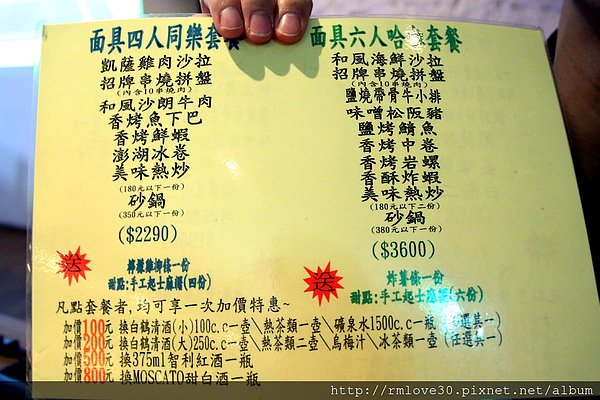 面具四人同樂套餐
凱薩雞肉沙拉
招牌串燒拼盤
(內含10串燒肉)
和風沙朗牛肉
香烤魚下巴
香烤鮮蝦
澎湖冰卷
美味熱炒
(180元以下一份)
砂鍋
(350元以下一份)
($2290)
送
檸檬雞柳條一份
甜點:手工起士麻糬(四份)
面具六人哈 套餐
和風海鮮沙拉
招牌串燒拼盤
(內含10串燒肉)
鹽燒帶骨牛小排
味噌松阪豬
鹽烤鯖魚
香烤中卷
香烤岩螺
香酥炸蝦
美味熱炒
(180元以下二份)
砂鍋
(380元以下一份)
($3600)
送
炸薯條一份
甜點:手工起士麻糬(六份)
凡點套餐者,均可享一次加價特惠~
加價100元 換白鶴清酒(小)100c.c一壺\熱茶類一壺\礦泉水1500c.c一瓶 (任選其一)
加價200元 換白鶴清酒(大)250c.c一壺\熱茶類二壺\烏梅汁\冰茶類一壺 (任選其一)
加價500元 換375ml智利紅酒一瓶
加價800元 換MOSCATO甜白酒一瓶
http://rmlove30.pixnet.net/album